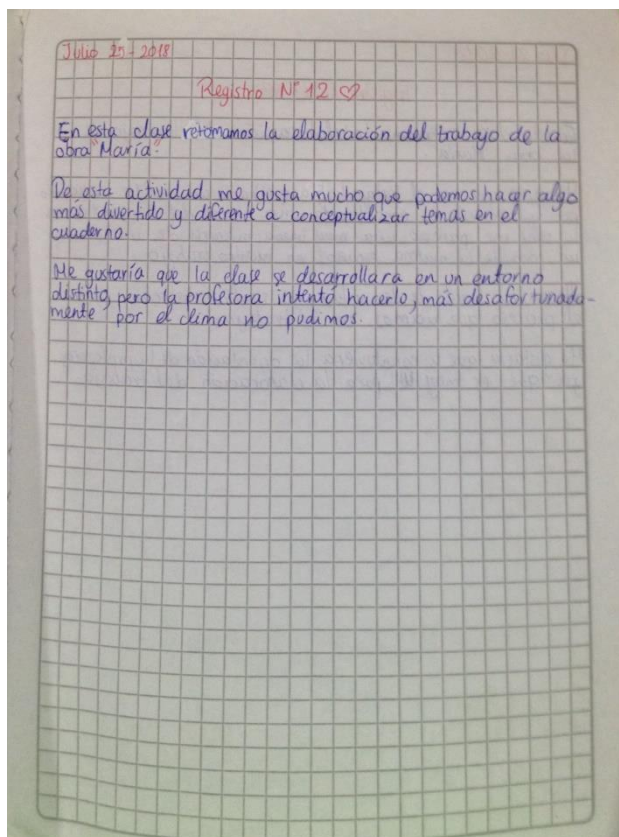 Julio 25-2018
Registro N° 12 ♡
En esta clase retomamos la elaboración del trabajo de la
obra "María".
De esta actividad me gusta mucho que podemos hacer algo
más divertido y diferente a conceptualizar temas en el
cuaderno.
Me gustaría que la clase se desarrollara en un entorno
distinto, pero la profesora intentó hacerlo, más desafortunada-
mente por el clima no pudimos.